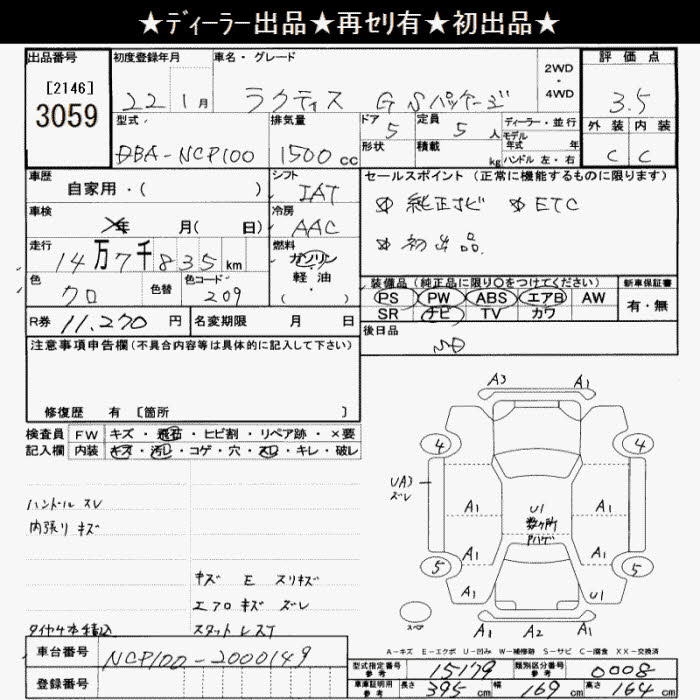 ★ディーラー出品★再セリ有★初出品★
出品番号
[2146]
3059
初度登録年月
22 1月
車名・グレード
ラクティス G Sパッケージ
2WD
・
4WD
評価点
3.5
外装 内装
C C
型式
DBA-NCP100
排気量
1500 cc
ドア
5
定員
5 人
形状
積載
kg
ディーラー・並行
モデル
年式 年
ハンドル 左・右
車歴
自家用・( )
シフト
IAT
車検
年 月( 日)
冷房
AAC
走行
14万7千835km
燃料
ガソリン
軽油
( ・ )
色
クロ
色替
色コード
209
R券 11,270 円
名変期限 月 日
セールスポイント(正常に機能するものに限ります)
純正ナビ ETC
初出品
装備品(純正品に限り○をつけてください)
PS PW ABS エアB AW
SR ナビ TV カワ
新車保証書
有・無
後日品
注意事項申告欄(不具合内容等は具体的に記入して下さい)
修復歴 有 〔箇所 〕
検査員 FW キズ・飛石・ヒビ割・リペア跡・×要
記入欄 内装 キズ・汚し・コゲ・穴・スレ・キレ・破レ
ハンドル スレ
内張り キズ
キズ E スリキズ
エアロ キズ ズレ
タイヤ4本積込
スタットレスT
車台番号
NCP100-2000149
登録番号
A3 A1
4 4
UA3
ズレ
A1 A1
U1
数ヶ所
Pハゲ
A1 A1
5 5
A1 U1
スペア
A1 A2 A1
A-キズ E-エクボ U-凹み W-補修跡 S-サビ C-腐食 XX-交換済
型式指定番号
参考
15179
類別区分番号
参考
0008
車庫証明用
参考
長さ 395 cm 幅 169 cm 高さ 164 cm